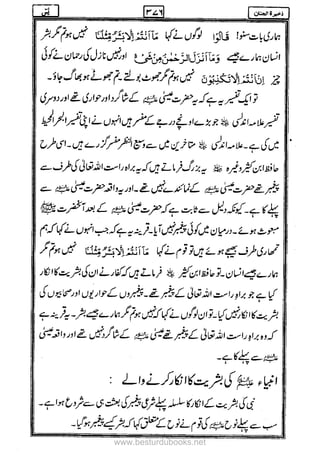 ذخیرۃ الجنان ۳۷۶ یٰس
ہماری بات سنو! قَالُوْا لوگوں نے کہا مَاۤ اَنْتُمْ اِلَّا بَشَرٌ مِّثْلُنَا نہیں ہو تم مگر بشر
انسان ہمارے جیسے وَمَاۤ اَنْزَلَ الرَّحْمٰنُ مِنْ شَیْءٍ اور نہیں نازل کی رحمان نے کوئی
چیز اِنْ اَنْتُمْ اِلَّا تَكْذِبُوْنَ نہیں ہو تم مگر جھوٹ بولتے، تم جھوٹے ہو بھاگ جاؤ۔
تو ایک تفسیر یہ ہے کہ یہ حضرت عیسیٰ کے شاگرد اور حواری تھے اور دوسری
تفسیر علامہ اندلسی جو بڑے اونچے درجے کے مفسر ہیں انہوں نے اپنی تفسیر البحر المحیط
میں کی ہے۔ علامہ اندلسی متاخرین میں سے وسیع النظر مفسر گزرے ہیں۔ اسی طرح
حافظ ابن کثیر وغیرہ یہ بزرگ فرماتے ہیں کہ یہ براہ راست اللہ تعالیٰ کی طرف سے
پیغمبر تھے حضرت عیسیٰ کے نمائندے نہیں تھے۔ اور یہ واقعہ حضرت عیسیٰ سے
پہلے کا ہے۔ کیونکہ دلیل سے ثابت ہے کہ حضرت عیسیٰ کے بعد آنحضرت ﷺ
مبعوث ہوئے۔ درمیان میں کوئی پیغمبر نہیں آیا۔ قرینہ یہ ہے کہ جب انہوں نے کہا کہ ہم
تمہاری طرف بھیجے ہوئے ہیں تو قوم نے کہا مَاۤ اَنْتُمْ اِلَّا بَشَرٌ مِّثْلُنَا نہیں ہو تم مگر
ہمارے جیسے انسان۔ تو حافظ ابن کثیر فرماتے ہیں کہ کفار نے ان کی بشریت کا انکار
کیا ہے جو براہ راست اللہ تعالیٰ کے پیغمبر تھے۔ پیغمبروں کے حواریوں اور صحابیوں کی
بشریت کا انکار نہیں کیا۔ تو ان لوگوں نے کہا کہ نہیں ہو تم مگر ہمارے جیسے بشر۔ یہ قرینہ ہے
کہ وہ براہ راست اللہ تعالیٰ کے پیغمبر تھے عیسیٰ کے شاگرد نہیں تھے اور واقعہ عیسیٰ
سے پہلے کا ہے۔
انبیاء کی بشریت کا انکار کرنے والے :
نبی کی بشریت کے انکار کا سلسلہ پہلے شرعی پیغمبر کی بعثت ہی سے شروع ہوا ہے۔
سب سے پہلے نوح کی قوم نے نوح کے متعلق کہا کہ بشر کیسے پیغمبر ہو گیا۔
www.besturdubooks.net